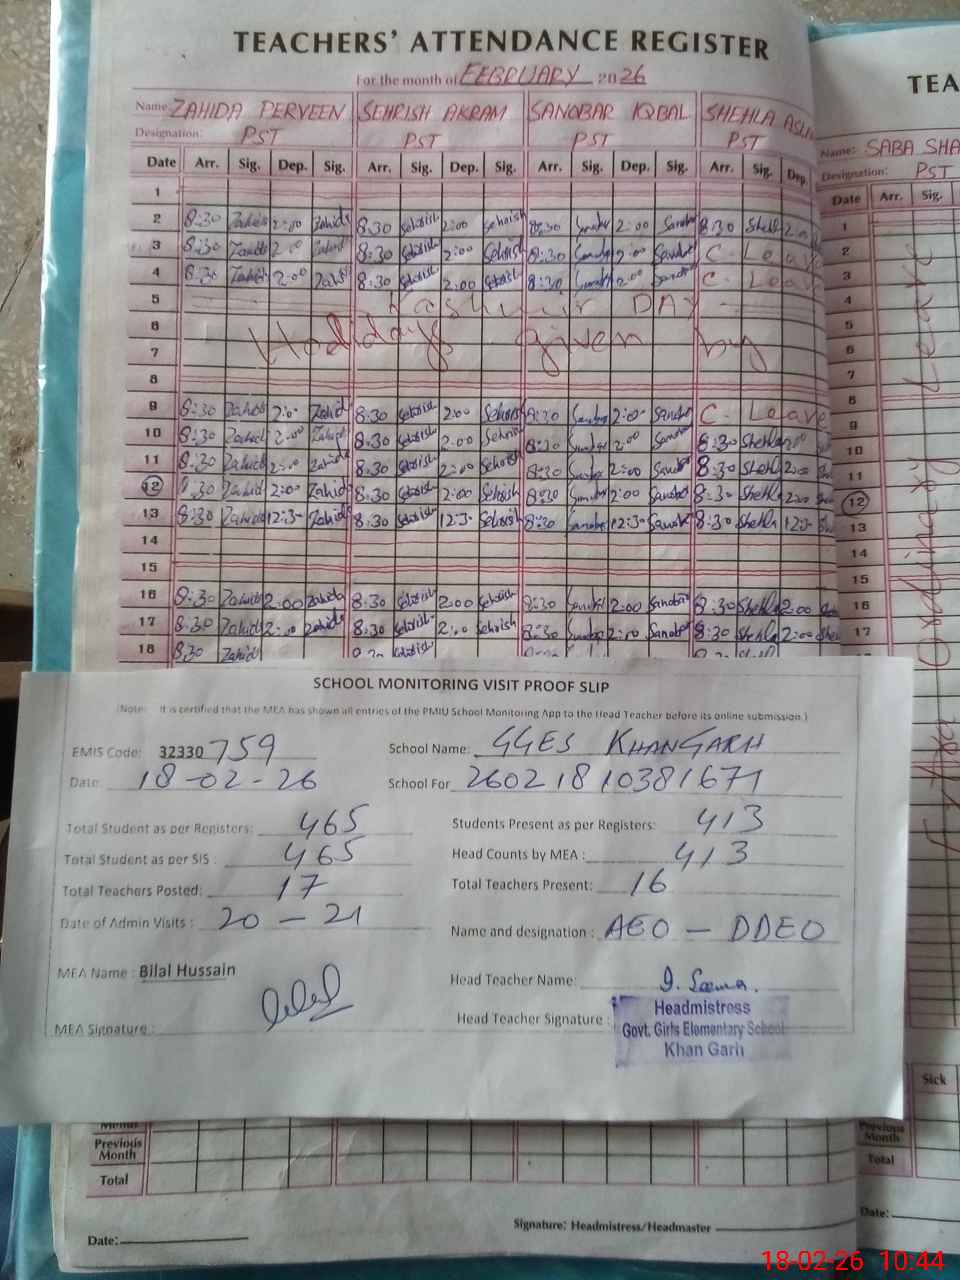 TEACHERS' ATTENDANCE REGISTER
For the month of FEBRUARY 2026
Name: ZAHIDA PERVEEN SEHRISH AKRAM SANOBAR IQBAL SHEHLA
Designation: PST PST PST PST
Date Arr. Sig. Dep. Sig. Arr. Sig. Dep. Sig. Arr. Sig. Dep. Sig. Arr. Sig. Dep.
1
2 8:30 Zahida 2:00 Zahida 8:30 Sehrish 2:00 Sehrish 8:30 2:00 8:30 Shehla
3 8:30 Zahida 2:00 8:30 Sehrish 2:00 Sehrish 8:30 2:00 C. Leave
4 8:30 Zahida 2:00 8:30 Sehrish 2:00 Sehrish 8:30 2:00 C. Leave
5 Kashmir DAY
6 Holidays given by
7
8
9 8:30 Zahida 2:00 Zahida 8:30 Sehrish 2:00 Sehrish 8:30 2:00 C. Leave
10 8:30 Zahida 2:00 8:30 Sehrish 2:00 Sehrish 8:30 2:00 8:30 Shehla
11 8:30 Zahida 2:00 8:30 Sehrish 2:00 Sehrish 8:30 2:00 8:30 Shehla 2:00
12 8:30 Zahida 2:00 Zahida 8:30 Sehrish 2:00 Sehrish 8:30 2:00 8:30 Shehla 2:00
13 8:30 Zahida 12:30 Zahida 8:30 Sehrish 12:30 Sehrish 8:30 12:30 8:30 Shehla 12:30
14
15
16 8:30 Zahida 2:00 Zahida 8:30 Sehrish 2:00 Sehrish 8:30 2:00 8:30 Shehla 2:00
17 8:30 Zahida 2:00 Zahida 8:30 Sehrish 2:00 Sehrish 8:30 2:00 8:30 Shehla 2:00
18 8:30 Zahida
TEA
Name: SABA
Designation: PST
Date Arr. Sig.
1
2
3
4
5
6
7
8
9
10
11
12
13
14
15
16
17
Leave
SCHOOL MONITORING VISIT PROOF SLIP
(Note: It is certified that the MEA has shown all entries of the PMIU School Monitoring App to the Head Teacher before its online submission.)
EMIS Code: 32330759 School Name: GGES KHANGARH
Date: 18-02-26 School For 26021810381671
Total Student as per Registers: 465 Students Present as per Registers: 413
Total Student as per SIS : 465 Head Counts by MEA : 413
Total Teachers Posted: 17 Total Teachers Present: 16
Date of Admin Visits : 20 - 21 Name and designation : AEO - DDEO
MEA Name : Bilal Hussain Head Teacher Name:
MEA Signature : Head Teacher Signature :
Headmistress
Govt. Girls Elementary School
Khan Garh
Sick
Previous
Month
Total
Previous
Month
Total
Date:
Signature: Headmistress/Headmaster
Date:
18-02-26 10:44